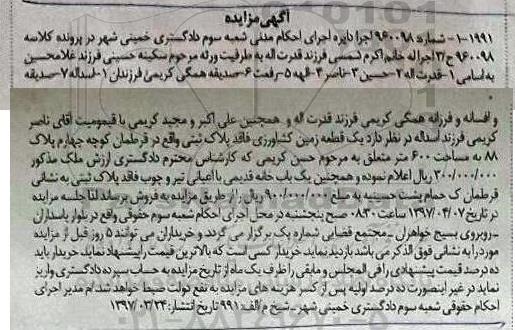 آگهی مزایده
۱۹۹۱-۱- شماره ۹۶۰۰۹۸ اجرا دایره اجرای احکام مدنی شعبه سوم دادگستری خمینی شهر در پرونده کلاسه
۹۶۰۰۹۸ ح/۳ اجرا له خانم اکرم شمسی فرزند قدرت اله به طرفیت ورثه مرحوم سکینه حسینی فرزند غلامحسن
به اسامی ۱-قدرت اله ۲-حسین ۳-ناصر ۴-الهه ۵-رفعت ۶-صدیقه همگی کریمی فرزندان ۱-اسداله ۷-صدیقه
و افسانه و فرزانه همگی کریمی فرزند قدرت اله و همچنین علی اکبر و مجید کریمی با قیمومیت آقای ناصر
کریمی فرزند اسداله در نظر دارد یک قطعه زمین کشاورزی فاقد پلاک ثبتی واقع در قرطمان کوچه چهارم پلاک
۸۸ به مساحت ۶۰۰ متر متعلق به مرحوم حسن کریمی که کارشناس محترم دادگستری ارزش ملک مذکور
۳۰۰/۰۰۰/۰۰۰ ریال اعلام نموده و همچنین یک باب خانه قدیمی با اعیانی تیر و چوب فاقد پلاک ثبتی به نشانی
قرطمان ک حمام پشت حسینیه به مبلغ ۹۰۰/۰۰۰/۰۰۰ ریال را از طریق مزایده به فروش برساند لذا جلسه مزایده
در تاریخ ۱۳۹۷/۰۴/۰۷ ساعت ۰۸:۳۰ صبح پنجشنبه در محل اجرای احکام شعبه سوم حقوقی واقع در بلوار پاسداران
-روبروی بسیج خواهران -مجتمع قضایی شماره یک برگزار می گردد و خریداران می توانند ۵ روز قبل از مزایده
مورد را به نشانی فوق الذکر می باشد بازدید نماید خریدار کسی است که بالاترین قیمت را پیشنهاد نماید خریدار باید
ده درصد قیمت پیشنهادی را فی المجلس و مابقی را ظرف یک ماه از تاریخ مزایده به حساب سپرده دادگستری واریز
نماید در غیر اینصورت ده درصد اولیه پس از کسر هزینه های مزایده به نفع دولت ضبط خواهد شد./م مدیر اجرای
احکام حقوقی شعبه سوم دادگستری خمینی شهر-شیخ م/الف: ۹۹۱ تاریخ انتشار: ۱۳۹۷/۰۳/۲۴